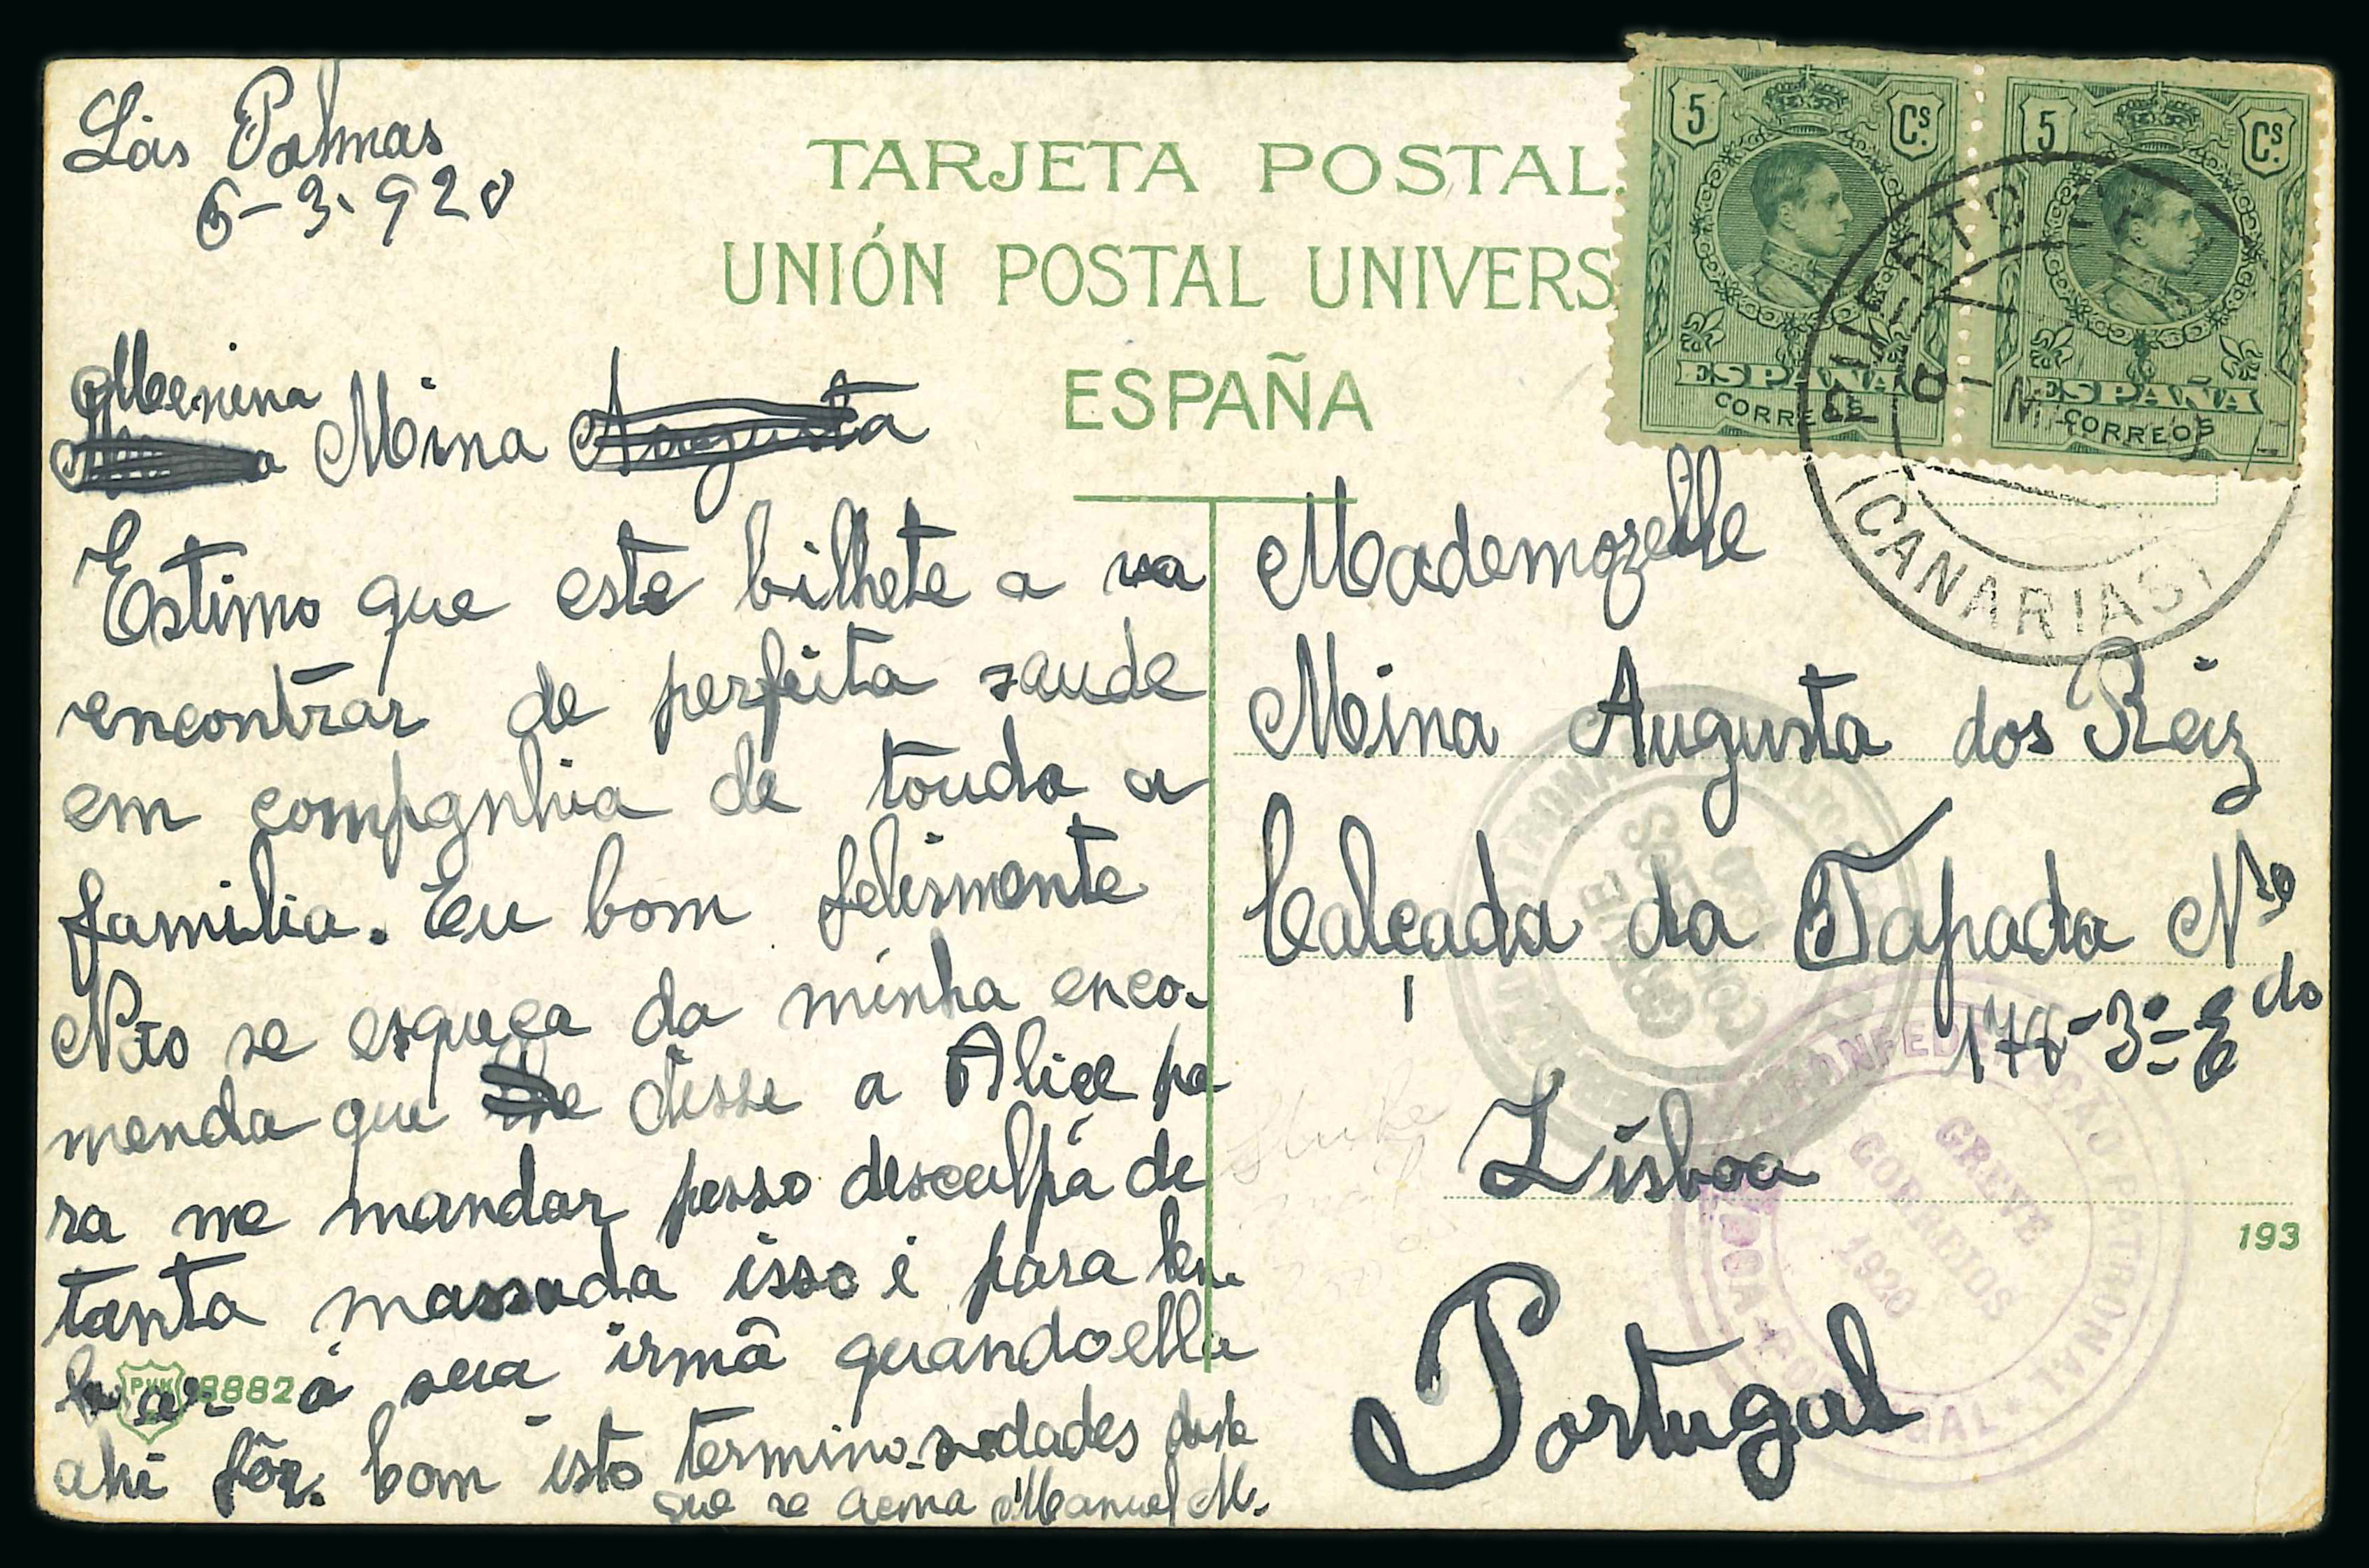 Las Palmas
6-3-920
TARJETA POSTAL
UNIÓN POSTAL UNIVERS
ESPAÑA
5 Cs.
ESPAÑA
CORREOS
5 Cs.
ESPAÑA
CORREOS
PUERTO
(CANARIAS)
Menina
Mina Augusta
Estimo que este bilhete a va
encontrar de perfeita saude
em compgnhia de touda a
familia. Eu bom felismente
Não se esqueça da minha enco-
menda que lhe disse a Alice pa
ra me mandar pesso desculpa de
tanta massada isso é para
á sua irmã quando ella
ahi fôr. bom isto termino. sudades deste
que se acina Manuel M.
PHK 8882
Mademozelle
Mina Augusta dos Reiz
Calcada da Tapada Nº
178-3º-E do
Lisboa
Portugal
GREVE
CORREIOS
1920
CONFEDERAÇÃO PATRONAL
LISBOA - PORTUGAL
GREVE
CORREIOS
1920
193